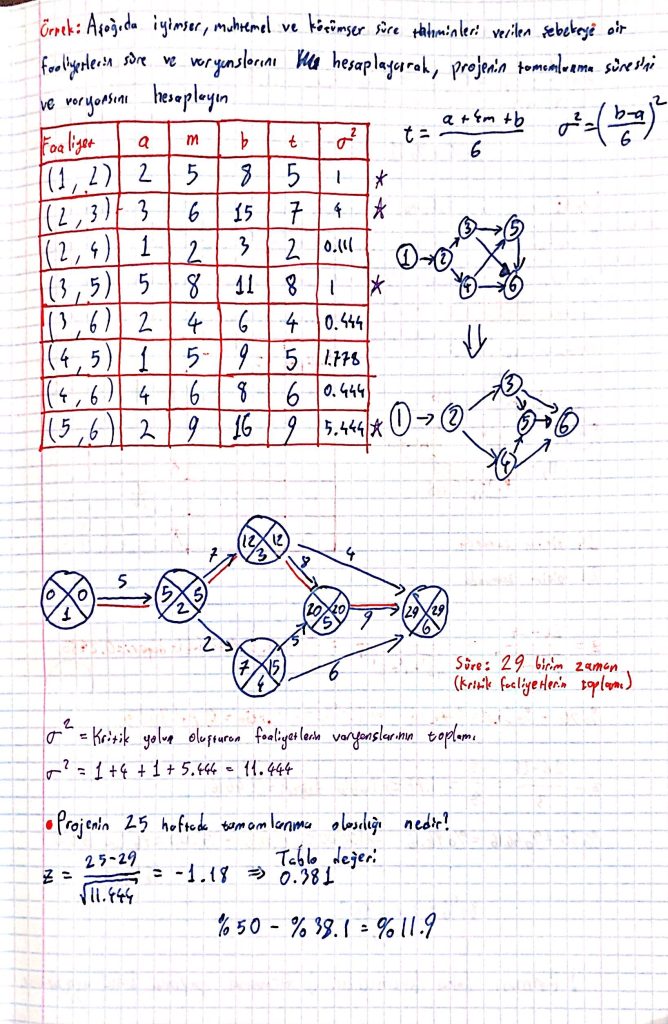 Örnek: Aşağıda iyimser, muhtemel ve kötümser süre tahminleri verilen şebekeye ait
faaliyetlerin süre ve varyanslarını hesaplayarak, projenin tamamlanma süresini
ve varyansını hesaplayın
t = (a+4m+b)/6 σ² = ((b-a)/6)²
Faaliyet a m b t σ²
(1, 2) 2 5 8 5 1 *
(2, 3) 3 6 15 7 4 *
(2, 4) 1 2 3 2 0.111
(3, 5) 5 8 11 8 1 *
(3, 6) 2 4 6 4 0.444
(4, 5) 1 5 9 5 1.778
(4, 6) 4 6 8 6 0.444
(5, 6) 2 9 16 9 5.444 *
1 2 3 4 5 6
1 2 3 4 5 6
0 0 1
5
5 5 2
7
12 12 3
4
8
2
7 15 4
5
20 20 5
9
6
29 29 6
Süre: 29 birim zaman
(kritik faaliyetlerin toplamı)
σ² = Kritik yolu oluşturan faaliyetlerin varyanslarının toplamı
σ² = 1+4+1+5.444 = 11.444
• Projenin 25 haftada tamamlanma olasılığı nedir?
z = (25-29)/√11.444 = -1.18 ⇒ Tablo değeri 0.381
%50 - %38.1 = %11.9